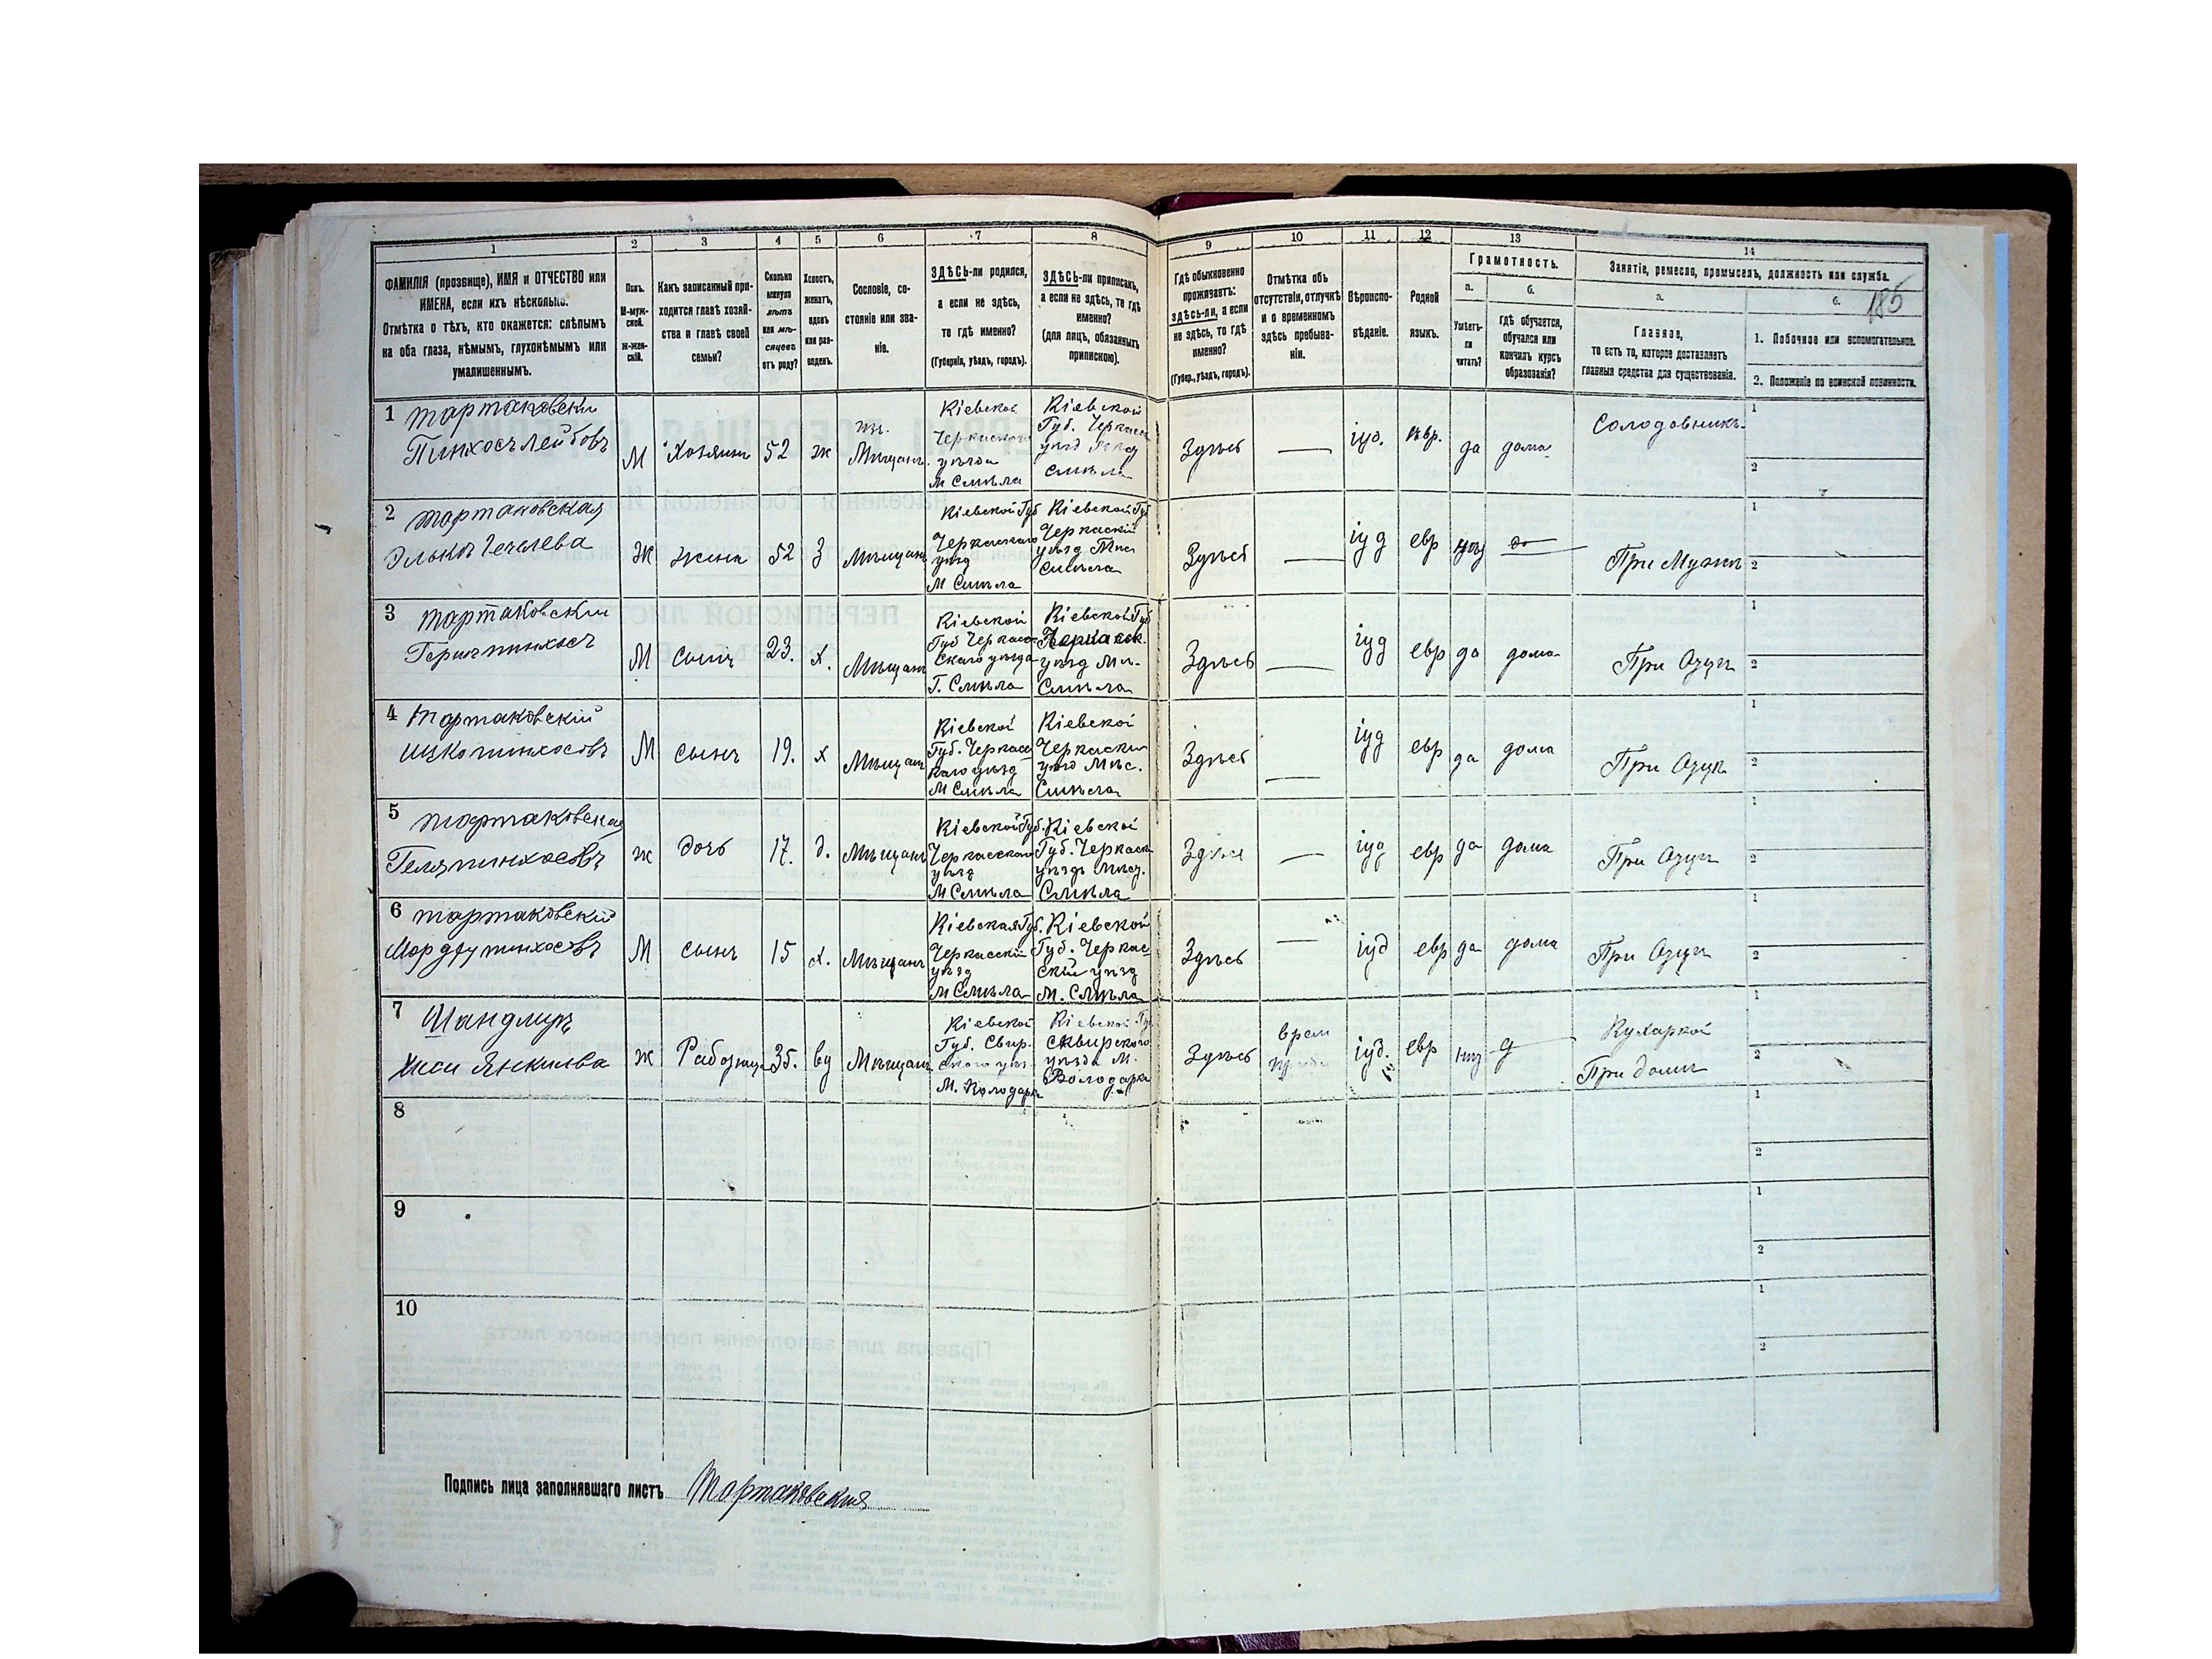 1 2 3 4 5 6 7 8 9 10 11 12 13 14
ФАМИЛІЯ (прозвище), ИМЯ и ОТЧЕСТВО или
ИМЕНА, если ихъ нѣсколько.
Отмѣтка о тѣхъ, кто окажется: слѣпымъ
на оба глаза, нѣмымъ, глухонѣмымъ или
умалишеннымъ.
Полъ.
М-муж-
ской.
Ж-жен-
скій.
Какъ записанный при-
ходится главѣ хозяй-
ства и главѣ своей
семьи?
Сколько
минуло
лѣтъ
или мѣ-
сяцевъ
отъ роду?
Холостъ,
женатъ,
вдовъ
или раз-
веденъ.
Сословіе, со-
стояніе или зва-
ніе.
ЗДѢСЬ-ли родился,
а если не здѣсь,
то гдѣ именно?
(Губернія, уѣздъ, городъ).
ЗДѢСЬ-ли приписанъ,
а если не здѣсь, то гдѣ
именно?
(для лицъ, обязанныхъ
припискою).
Гдѣ обыкновенно
проживаетъ:
здѣсь-ли, а если
не здѣсь, то гдѣ
именно?
(Губер., уѣздъ, городъ).
Отмѣтка объ
отсутствіи, отлучкѣ
и о временномъ
здѣсь пребыва-
ніи.
Вѣроиспо-
вѣданіе.
Родной
языкъ.
Грамотность.
а.
Умѣетъ-
ли
читать?
б.
гдѣ обучается,
обучался или
кончилъ курсъ
образованія?
Занятіе, ремесло, промыселъ, должность или служба.
а.
Главное,
то есть то, которое доставляетъ
главныя средства для существованія.
б.
185
1. Побочное или вспомогательное.
2. Положеніе по воинской повинности.
1 Тартаковскій
Пинхосъ Лейбовъ
М
Хозяинъ
52
ж
Мѣщанъ.
Кіевской
Черкаского
уѣзда
М Смѣла
Кіевской
Губ. Черкасс
уѣзд
Смѣла
Здѣсь
іуд.
евр.
да
дома
Солодовникъ
1
2
2 Тартаковская
Элька
Ж
жена
52
З
Мѣщанъ
Кіевской Губ
Черкаскаго
уѣзд
М Смѣла
Кіевской Губ
Черкаскій
уѣзд
Смѣла
Здѣсь
іуд
евр
При Мужѣ
1
2
3 Тартаковскій
Гершъ пинхосъ
М
Сынъ
23.
х.
Мѣщанъ
Кіевской
Губ Черкас
Скаго уѣзда
Г. Смѣла
Кіевской Губ
Черкасск.
уѣзд Мѣ.
Смѣла
Здѣсь
іуд
евр
да
дома
При Отцѣ
1
2
4 Тартаковскій
Ицко пинхосовъ
М
сынъ
19.
х
Мѣщанъ
Кіевской
Губ. Черкасс
каго уѣзд
М Смѣла
Кіевской
Черкаскій
уѣзд Мѣс.
Смѣла
Здѣсь
іуд
евр
да
дома
При Отцѣ
1
2
5 Тартаковская
Геля пинхосовъ
ж
дочь
17.
д.
Мѣщанъ
Кіевской Губ.
Черкасскаго
уѣзд
М Смѣла
Кіевской
Губ. Черкаск
уѣздъ
Смѣла
Здѣсь
іуд
евр
да
дома
При Отцѣ
1
2
6 Тартаковскій
Мордку пинхосовъ
М
сынъ
15
х.
Мѣщанъ
Кіевская Губ.
Черкасскій
уѣзд
М Смѣла
Кіевской
Губ. Черкас-
скій уѣзд
М. Смѣла
Здѣсь
іуд
евр
да
дома
При Отцѣ
1
2
7 Шандлиръ
Янкилева
ж
Работница
35.
вд
Мѣщанъ
Кіевской
Губ. Сквир-
скаго уѣз-
М. Володарк
Кіевской Губ
Сквирского
уѣзда М.
Володарка
Здѣсь
врем
іуд.
евр
Кухаркой
При домѣ
1
2
8
1
2
9
1
2
10
1
2
Подпись лица заполнявшаго листъ Тартаковскія